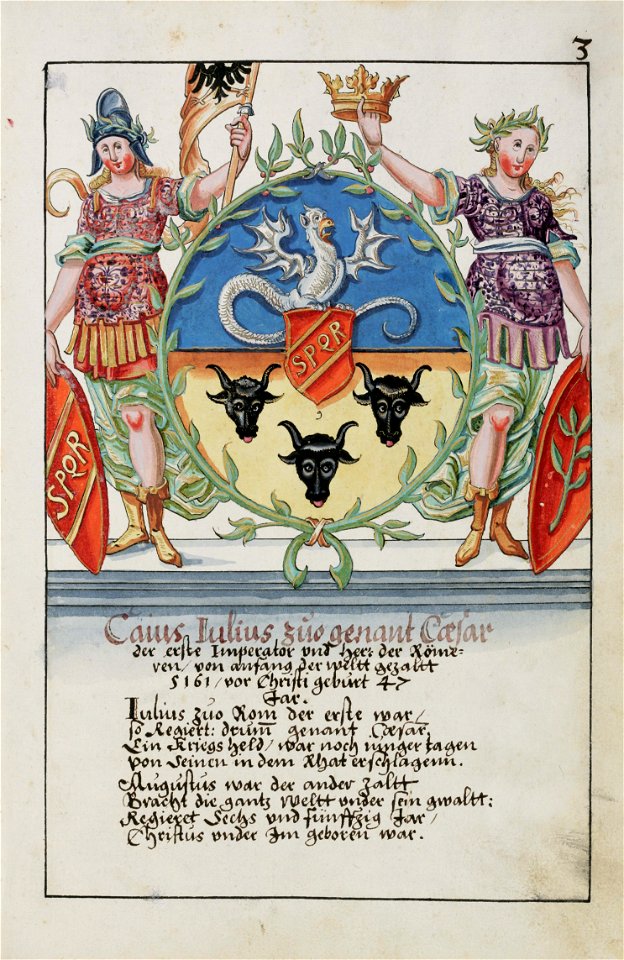 3
SPQR
SPQR
Caius Iulius zuo genant Cæsar
der erste Imperator vnd Herr der Röme-
ren / von anfang der weltt gezaltt
5161 / vor Christi geburt 47
Jar.
Iulius zuo Rom der erste war /
so Regiert: drum̄ genant Cæsar
Ein Kriegs held / war noch iunger tagen
von Seinen in dem Rhat erschlagenn.
Augustus war der ander zaltt
Bracht die gantz weltt vnder sein gwaltt:
Regieret Sechs vnd fünffzig Jar /
Christus vnder Im geboren war.